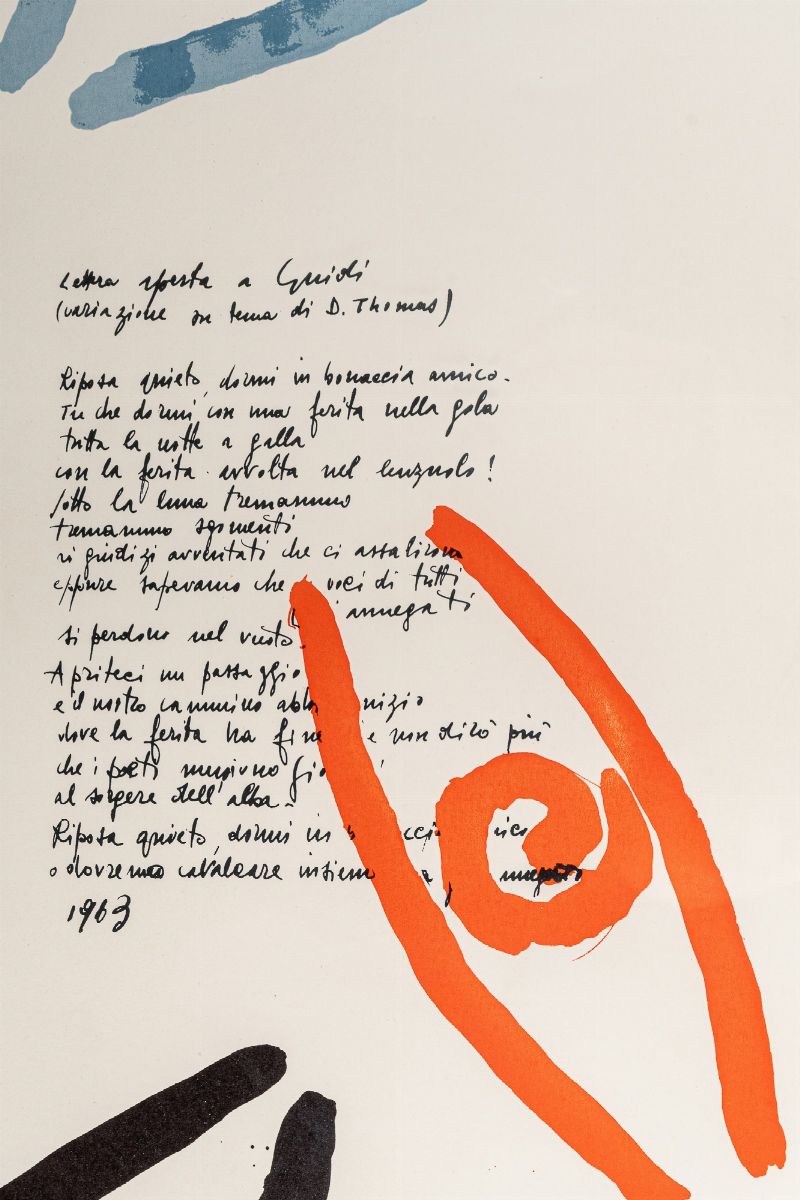 Lettera aperta a Guidi
(variazione su tema di D. Thomas)
Riposa quieto, dormi in bonaccia amico.
Tu che dormi con una ferita nella gola
tutta la notte a galla
con la ferita avvolta nel lenzuolo!
sotto la luna tremammo
tremammo sgomenti
ai giudizi avventati che ci assalirono
eppure sapevamo che voci di tutti
annegati
si perdono nel vento.
Apriteci un passaggio
e il nostro cammino
dove la ferita ha fine e non dirò più
che i poeti
al sorgere dell'alba -
Riposa quieto, dormi in
o dovremo cavalcare insieme
1963